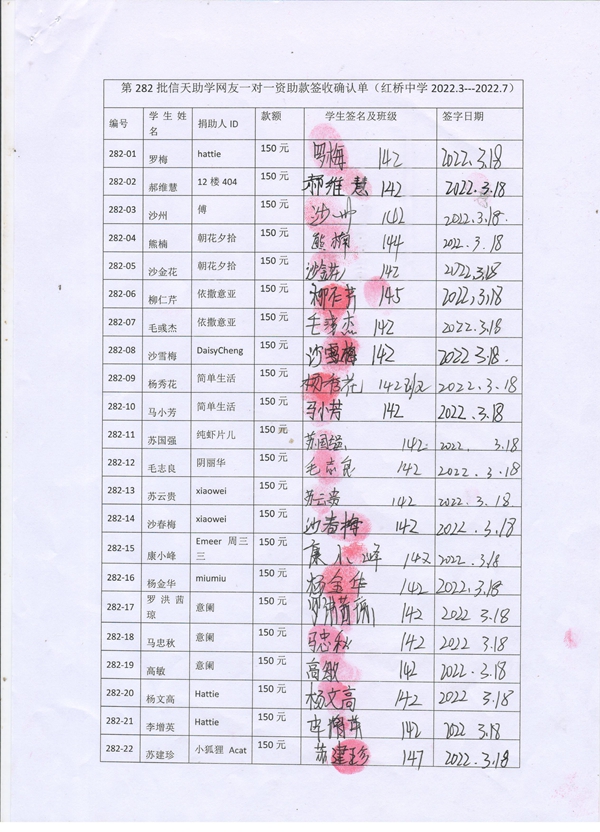 第 282 批信天助学网友一对一资助款签收确认单（红桥中学 2022.3---2022.7）
编号 学生姓名 捐助人 ID 款额 学生签名及班级 签字日期
282-01 罗梅 hattie 150 元 罗梅 142 2022.3.18
282-02 郝维慧 12 楼 404 150 元 郝维慧 142 2022.3.18
282-03 沙州 傅 150 元 沙州 142 2022.3.18.
282-04 熊楠 朝花夕拾 150 元 熊楠 144 2022.3.18
282-05 沙金花 朝花夕拾 150 元 沙金花 142 2022.3.18
282-06 柳仁芹 依撒意亚 150 元 柳仁芹 145 2022.3.18
282-07 毛彧杰 依撒意亚 150 元 毛彧杰 142 2022.3.18
282-08 沙雪梅 DaisyCheng 150 元 沙雪梅 142 2022.3.18.
282-09 杨秀花 简单生活 150 元 杨秀花 142班 2022.3.18
282-10 马小芳 简单生活 150 元 马小芳 142 2022.3.18
282-11 苏国强 纯虾片儿 150 元 苏国强 142 2022.3.18
282-12 毛志良 阴丽华 150 元 毛志良 142 2022.3.18
282-13 苏云贵 xiaowei 150 元 苏云贵 142 2022.3.18
282-14 沙春梅 xiaowei 150 元 沙春梅 142 2022.3.18
282-15 康小峰 Emeer 周三三 150 元 康小峰 142 2022.3.18
282-16 杨金华 miumiu 150 元 杨金华 142 2022.3.18
282-17 罗洪茜琼 意阑 150 元 罗洪茜琼 142 2022 3.18
282-18 马忠秋 意阑 150 元 马忠秋 142 2022 3.18
282-19 高敏 意阑 150 元 高敏 142 2022.3.18
282-20 杨文高 Hattie 150 元 杨文高 142 2022.3.18
282-21 李增英 Hattie 150 元 李增英 142 2022 3.18
282-22 苏建珍 小狐狸 Acat 150 元 苏建珍 147 2022.3.18